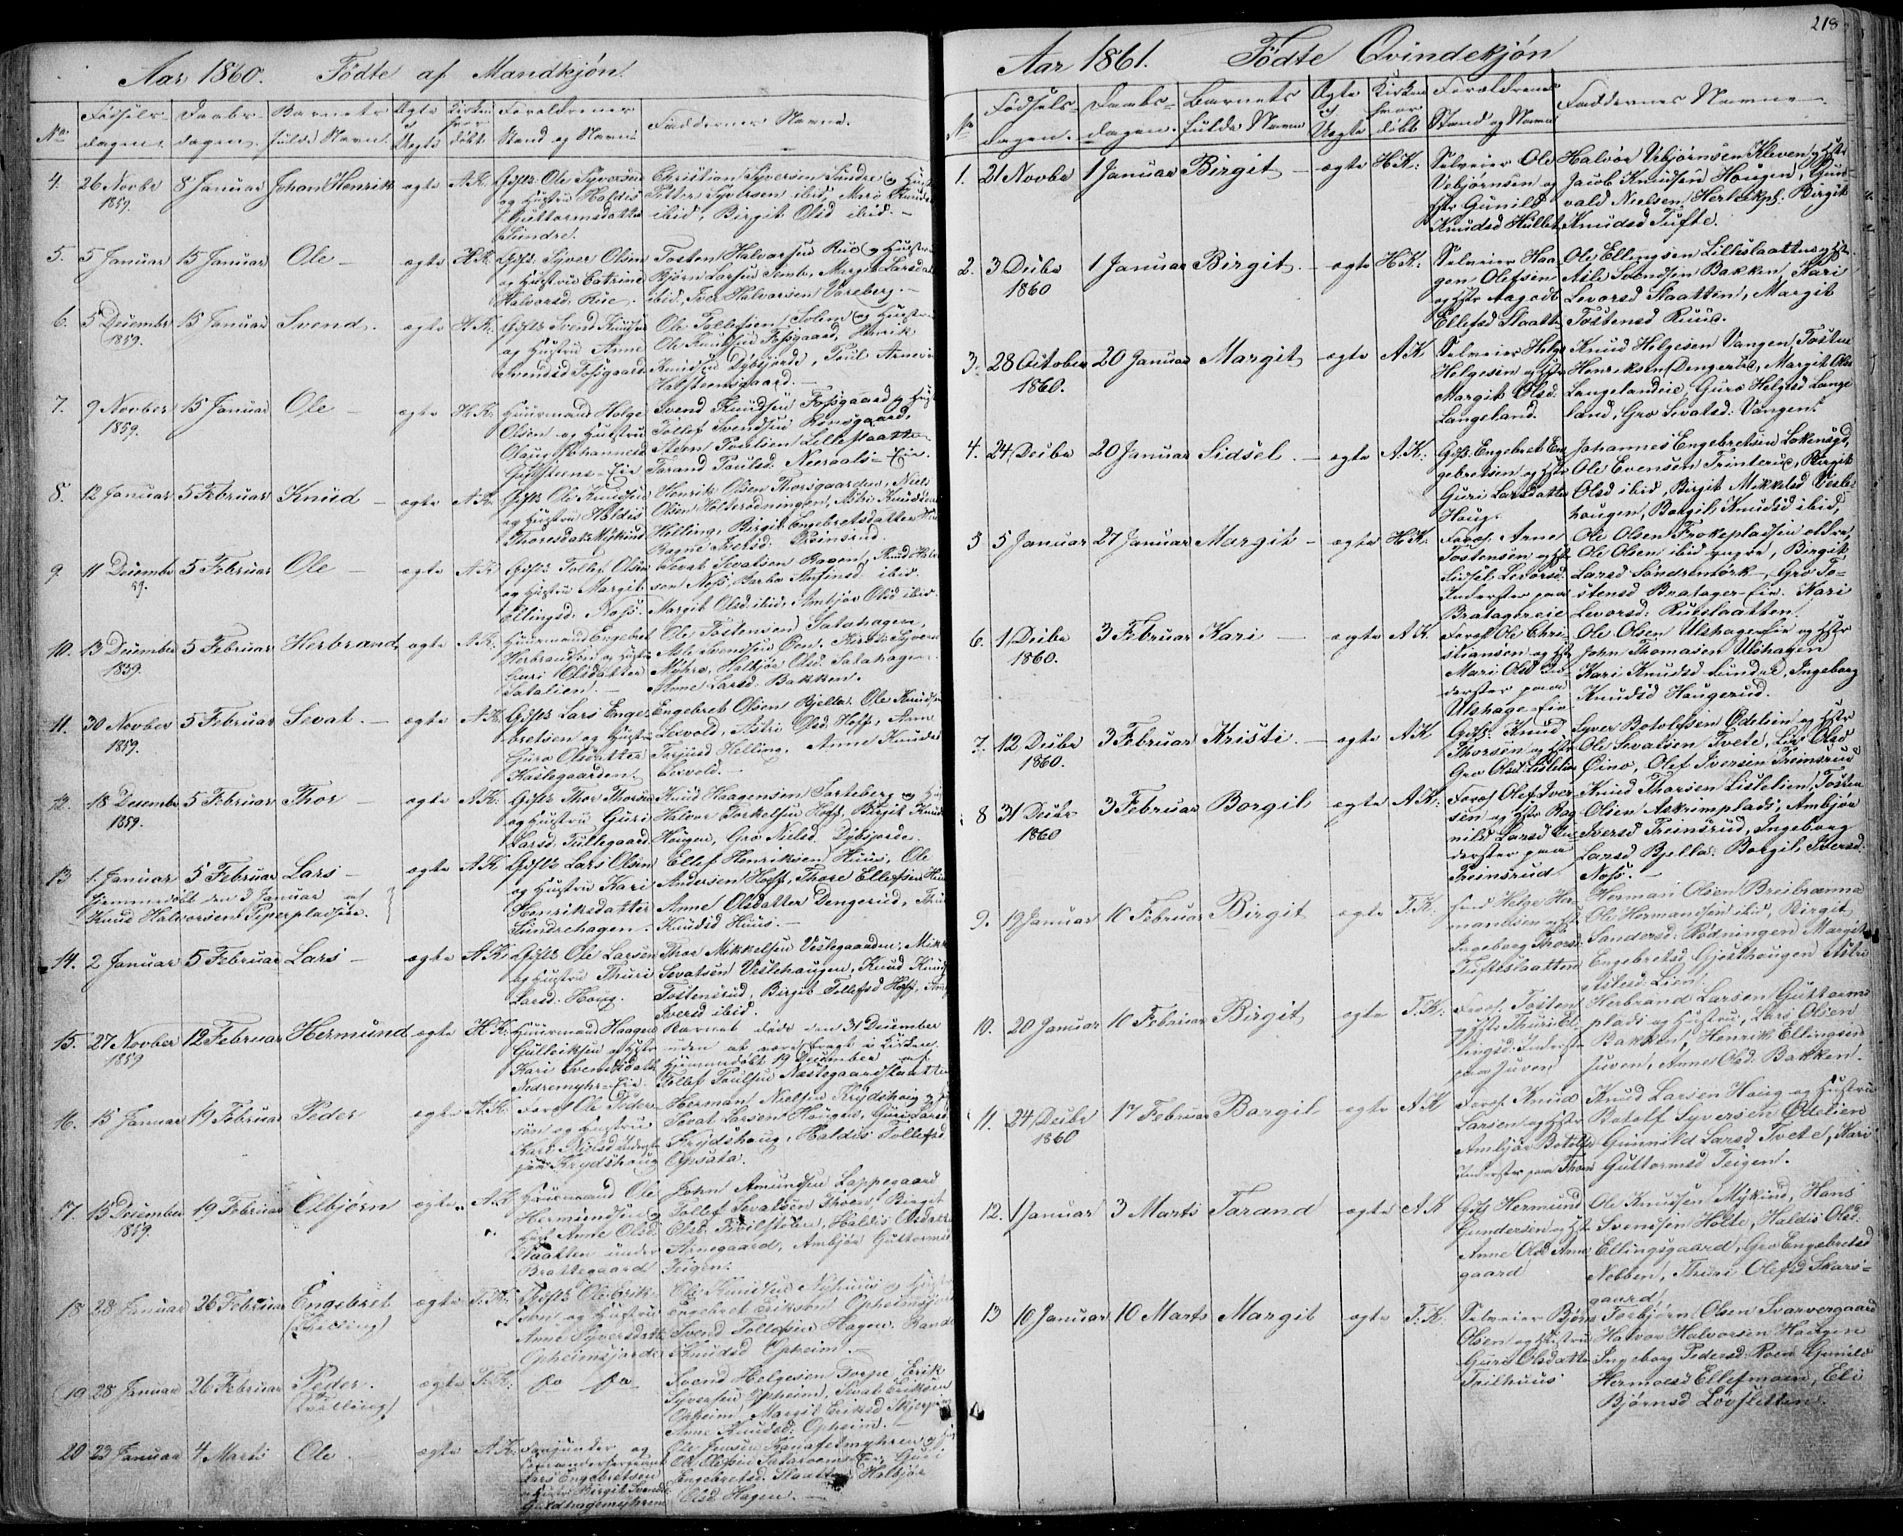 Aar 1860. Fødte af Mandkjøn.
No. Fødsels-dagen. Daabs-dagen. Barnets fulde Navn. Ægte el. Uegte Kirken hvor døbt. Forældrenes Stand og Navn. Faddernes Navne.
4. 26 Novbr 1859. 8 Januar Johan Henrik ægte A.K. Gifte Ole Syversen og Hustru Haldis Guttormsdatter Sundre.
Christian Syversen Sundre og Hustru
Petter Syversen ibid, Birgit Olsd ibid.
5. 5 Januar 15 Januar Ole ægte H.K. Gifte Syver Olsen og Hustru Catrine Halvorsd. Rue.
Tosten Halvorsen Rue og Hustru
Bjørn Larsen, Margit Larsd. ibid, Iver Halvorsen Vareberg.
6. 5 Decembr 1859. 15 Januar Svend. ægte H.K. Gifte Svend Knudsen og Hustru Anne Svendsd Fossgaard
Ole Tollefsen Solem og Hustru
Ole Knudsen Fossgaard, Knudsen Dybsjorde, Paul Arnesen
7. 9 Novber 1859. 15 Januar Ole ægte H.K. Huusmand Helge Olsen og Hustru Olaug Johannesd
Svend Knudsen Fossgaard og Hustru
Tollef Svendsen Rensgaard, Steen Poulsen Lilleslaatten
Tarand Paulsd. Neeraals-Eie.
8. 12 Januar 5 Februar Knud ægte A.K. Gifte Ole Knudsen og Hustru Haldis Thoresdatter Mykind
Henrik Olsen Thorsgaarden, Niels Olsen Holterødningen, Astri Knudsd
Helling, Birgit Engebretsdatter
Ragne Iversd. Treinsrud.
9. 11 Decembr 59. 5 Februar Ole ægte A.K. Gifte Tollef Olsen og Hustru Margit Ellingsd. Noss.
Sevat Sevatsen Hagen, Noss, Barbo Anfinsd ibid.
Margit Olsd ibid, Ambjør Olsd ibid.
10. 13 Decembr 1859. 5 Februar Herbrand ægte A.K. Huusmand Engebret Herbrandsen og Hustru Guri Olsdatter Satalien.
Ole Tostensen Satahagen, Asle Svendsen Øen, Kirsti Syversd
Myhre, Halbjør Olsd. Satahagen
Anne Larsd. Bakken.
11. 30 Novber 1859. 5 Februar Sevat. ægte A.K. Gifte Lars Engebretsen og Hustru Guro Olsdatter
Engebret Olsen Bjella, Ole Knudsen
Lexvold, Astri Olsd. Hoff, Anne
Torjusd Helling, Anne Knudsd
Lexvold.
12. 18 Decembr 1859. 5 Februar Thor ægte A.K. Gifte Thor Thorsen og Hustru Guri Larsd. Tuttegaard
Knud Haagensen Sarteberg og
Halvor Torkelsen Hoff, Birgit
Haugen, Gro Nielsd. Dybsjorde.
13 1. Januar 5 Februar Lars ægte A.K. Gifte Lars Olsen og Hustru Kari Henriksdatter Sundrehagen.
hjemmedøbt den 3 Januar af Knud Halvorsen Piperpladsen.
Ellef Henriksen Huus, Ole Andersen Hoff, Thore Ellefsen
Anne Olsdatter Dengerud, Knudsd Huus.
14. 2 Januar 5 Februar Lars ægte A.K. Gifte Ole Larsen og Hustru Thuri Larsd. Houg.
Thor Mikkelsen Vestegaarden,
Sevatsen Vestehaugen, Knud
Tostensrud, Birgit Tollefsd Hoff,
Iversd ibid.
15. 27 Novber 1859 12 Februar Hermund ægte H.K. Huusmand Haagen Gulleiksen og Hstr Kari Svendsdatter Nedremyhr-Eie.
Barnet døde den 31 December uden at være bragt i Kirken. Hjemmedøbt 19 December af Tollef Poulsen Næstegaardslaatten
16. 15 Januar 19 Februar Peder ægte A.K. Forof. Ole Pedersen og Hustru Kari Nielsd Inderst paa Krydshaug
Herman Nielsen Krydshaug
Sevat Larsen Haugen, Guri Larsd
Krydshaug, Haldis Tollefsd
Opsata.
17. 15 December 1859. 19 Februar Eilbjørn ægte A.K. Huusmand Ole Hermundsen og Hust Anne Olsd Slaatten under Brattegaard
John Amundsen Lappegaard
Tollef Sevatsen Thoen, Birget
Olsd., Haldis Olsdatter
Arnegaard, Ambjør Guttormsd
Teigen.
18 28 Januar 26 Februar Engebret (Tvilling) ægte T.K. Gifte Ole Eriksen og Hustru Anne Syversdatter Opheimsjordet
Ole Knudsen Nyhuus og Hustru
Engebret Eriksen Opheimsjord
Svend Tollefsen Hagen, Randi
Knudsd Opheim.
19 28 Januar 26 Februar Peder. (Tvilling) ægte T.K. do do
Svend Helgesen Torpe, Erik
Syversen Opheim, Sevat Eriksen
Opheim, Margit Eriksd Skjerping
Anne Knudsd. Opheim.
20 23 Januar 4 Marts Ole ægte A.K. Lars Engebretsen og Hustru Birgit Svendsd Guldhagemyhren
Ole Jensen
Engebretsd. Slaatten, Halbjør
Olsd. Hagen.
218
Aar 1861. Fødte Qvindekjøn
No Fødsels dagen. Daabs- dagen. Barnets fulde Navn Ægte el Uegte Kirken hvor døbt Forældrenes Stand og Navn Faddernes Navne
1. 21 Novbr 1 Januar Birgit ægte H.K. Selveier Ole Vebjørnsen og Hstr Gunild Knudsd Hullet
Halvor Vebjørnsen Kleven og Hstr
Jacob Knudsen Haugen, Gunvald Nielsen Hertsekpl. Birgit
Knudsd Tufte.
2. 3 Decbr 1860 1 Januar Birgit. ægte H.K. Selveier Haagen Olefsen og Hstr Aagodt Ellefsd Slaatt
Ole Ellingsen Lilleslaatten og Hstr
Asle Svendsen Bakken, Kari
Levorsd Slaatten, Margit
Tostensd Ruud.
3. 28 October 1860. 20 Januar Margit ægte A.K Selveier Helge Helgesen og Hstr Margit Olsd. Langeland.
Knud Helgesen Vangen, Tosten
Henriksen Dengerud, Margit Olsd
Langelandeie, Guro Helgesd Langeland, Gro Sevatsd: Vangen.
4. 24 Decbr 20 Januar Sidsel. ægte A.K: Gift. Engebret Engebretsen og Hstr Guri Larsdatter Houg.
Johannes Engebretsen Lokensgd,
Ole Evensen Trinterud, Birgit
Olsd ibid, Birgit Mikkelsd Vestehaugen, Borgil Knudsd ibid,
5 5 Januar 27 Januar Margit ægte H.K Forof. Arne Tostensen og Hstr Sidsel Levorsd. Inderster paa Bratagereie
Ole Olsen Frokepladsen ældre,
Ole Olsen ibid yngre, Birgit
Larsd Søndremørk, Gro Tostensd Bratager-Eie. Kari
Levorsd: Ruuslaatten.
6. 1 Decbr 1860. 3 Februar Kari ægte A.K. Forof Ole Christiansen og Hstr Mari Olsd Inderster paa Ulshage-Eie
Ole Olsen Ulshage-Eie og Hstr
John Thomasen Ulshagen
Kari Knudsd Sundre, Ingeborg
Knudsd Haugerud.
7. 12 Decbr 1860. 3 Februar Kristi. ægte A.K Gift. Knud Thorsen og Hstr Gro Olsd: Lislelien
Syver Botolfsen Ødelien og Hstr
Ole Sevatsen Tvete, Liv Olsd
Øino, Olef Iversen Treinsrud
8 31 Decbr 1860 3 Februar Borgil ægte A.K: Forof. Olef Iversen og Hstr Ragnild Larsd Inderster paa Treinsrud
Knud Thorsen Lislelien, Tosten
Olsen Askrimplads, Ambjør
Iversd Treinsrud, Ingeborg
Larsd Bjella. Borgil Iversd:
Noss.
9. 19 Januar 10 Februar Birgit ægte T.K: Helge Hermandsen og Hst Ingeborg Thorsd. Tufteslaatten
Herman Olsen Breibrænna
Ole Hermandsen ibid, Birgit
Sandersd: Rødningen Margit
Engebretsd: Gjerthaugen Astri
Aslesd: Lien.
10. 20 Januar 10 Februar Birgit ægte T.K: Forof. Tosten og Hstr Thuri Ellingsd. Inderste paa Juven
Herbrand Larsen Guttormsplads og Hustru, Lars Olsen
Bakken, Henrik Ellingsen
Juven, Anne Olsd: Bakken.
11. 24 Decbr 1860 17 Februar Borgil ægte A.K Forof. Knud Larsen og Hstr Ambjør Botolfsd Inderster paa Thoen
Knud Larsen Haug og Hustru
Botolf Syversen Ødelien
Gunnild Larsd Tvete, Kari
Guttormsd Teigen.
12. 1 Januar 3 Marts Tarand ægte A.K Gift Hermund Gundersen og Hstr Anne Olsd Arnegaard
Ole Knudsen Mykind, Hans
Svendsen Holte, Haldis Olsd.
Ellingsgaard, Gro Engebretsd
Nebben, Thuri Olefsd Skarsgaard.
13 10 Januar 10 Marts Margit ægte T.K Selveier Bjørn Olsen og Hustru Guri Olsdatter Trilhuus
Torbjørn Olsen Svarvergaard
Halvor Halvorsen Haugen
Ingeborg Pedersd: Roen Gunild
Hermoesd Ellefmoen, Eli
Bjørnsd Løvsletten.